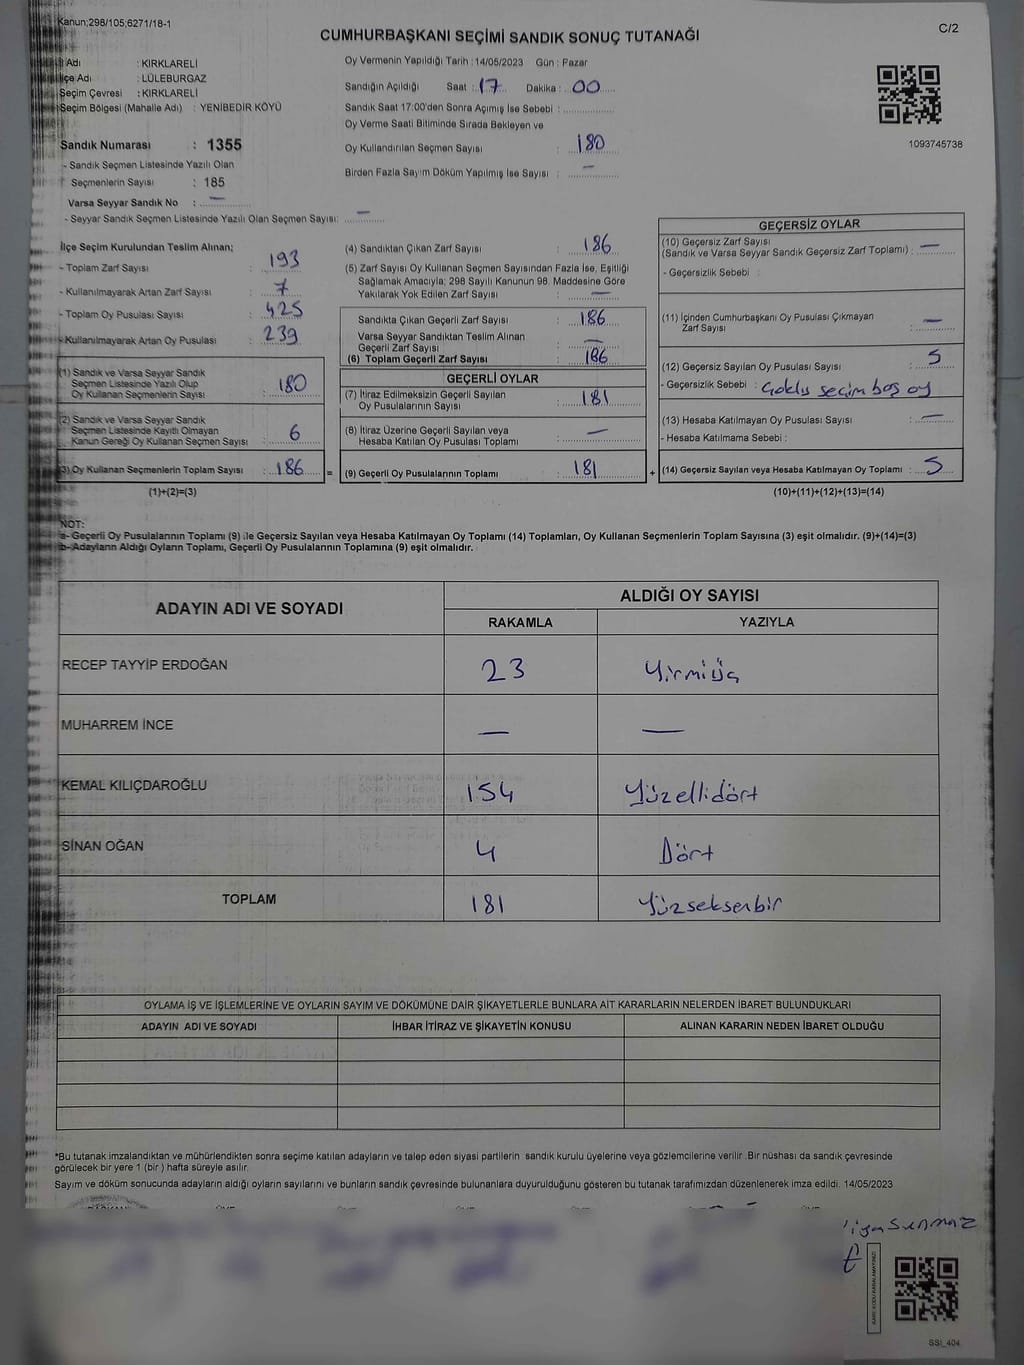 Kanun;298/105;6271/18-1
C/2
CUMHURBAŞKANI SEÇİMİ SANDIK SONUÇ TUTANAĞI
İl Adı : KIRKLARELİ
İlçe Adı : LÜLEBURGAZ
Seçim Çevresi : KIRKLARELİ
Seçim Bölgesi (Mahalle Adı) : YENİBEDİR KÖYÜ
Oy Vermenin Yapıldığı Tarih : 14/05/2023 Gün : Pazar
Sandığın Açıldığı Saat : 17 Dakika : 00
Sandık Saat 17:00'den Sonra Açımış İse Sebebi :
Oy Verme Saati Bitiminde Sırada Bekleyen ve
Oy Kullandırılan Seçmen Sayısı : 180
Birden Fazla Sayım Döküm Yapılmış İse Sayısı : —
1093745738
Sandık Numarası : 1355
- Sandık Seçmen Listesinde Yazılı Olan
Seçmenlerin Sayısı : 185
Varsa Seyyar Sandık No : —
- Seyyar Sandık Seçmen Listesinde Yazılı Olan Seçmen Sayısı: —
İlçe Seçim Kurulundan Teslim Alınan;
- Toplam Zarf Sayısı : 193
- Kullanılmayarak Artan Zarf Sayısı : 7
- Toplam Oy Pusulası Sayısı : 425
- Kullanılmayarak Artan Oy Pusulası : 239
(1) Sandık ve Varsa Seyyar Sandık
Seçmen Listesinde Yazılı Olup
Oy Kullanan Seçmenlerin Sayısı : 180
(2) Sandık ve Varsa Seyyar Sandık
Seçmen Listesinde Kayıtlı Olmayan
Kanun Gereği Oy Kullanan Seçmen Sayısı : 6
(3) Oy Kullanan Seçmenlerin Toplam Sayısı : 186 =
(1)+(2)=(3)
(4) Sandıktan Çıkan Zarf Sayısı : 186
(5) Zarf Sayısı Oy Kullanan Seçmen Sayısından Fazla İse, Eşitliği
Sağlamak Amacıyla; 298 Sayılı Kanunun 98. Maddesine Göre
Yakılarak Yok Edilen Zarf Sayısı : —
Sandıkta Çıkan Geçerli Zarf Sayısı : 186
Varsa Seyyar Sandıktan Teslim Alınan
Geçerli Zarf Sayısı : —
(6) Toplam Geçerli Zarf Sayısı : 186
GEÇERLİ OYLAR
(7) İtiraz Edilmeksizin Geçerli Sayılan
Oy Pusulalarının Sayısı : 181
(8) İtiraz Üzerine Geçerli Sayılan veya
Hesaba Katılan Oy Pusulası Toplamı : —
(9) Geçerli Oy Pusulalarının Toplamı : 181 +
GEÇERSİZ OYLAR
(10) Geçersiz Zarf Sayısı
(Sandık ve Varsa Seyyar Sandık Geçersiz Zarf Toplamı) : —
- Geçersizlik Sebebi :
(11) İçinden Cumhurbaşkanı Oy Pusulası Çıkmayan
Zarf Sayısı : —
(12) Geçersiz Sayılan Oy Pusulası Sayısı : 5
- Geçersizlik Sebebi : çoklu seçim boş oy
(13) Hesaba Katılmayan Oy Pusulası Sayısı : —
- Hesaba Katılmama Sebebi :
(14) Geçersiz Sayılan veya Hesaba Katılmayan Oy Toplamı : 5
(10)+(11)+(12)+(13)=(14)
NOT:
a- Geçerli Oy Pusulalarının Toplamı (9) ile Geçersiz Sayılan veya Hesaba Katılmayan Oy Toplamı (14) Toplamları, Oy Kullanan Seçmenlerin Toplam Sayısına (3) eşit olmalıdır. (9)+(14)=(3)
b- Adayların Aldığı Oyların Toplamı, Geçerli Oy Pusulalarının Toplamına (9) eşit olmalıdır.
ADAYIN ADI VE SOYADI
ALDIĞI OY SAYISI
RAKAMLA YAZIYLA
RECEP TAYYİP ERDOĞAN 23 Yirmiüç
MUHARREM İNCE — —
KEMAL KILIÇDAROĞLU 154 Yüzellidört
SİNAN OĞAN 4 Dört
TOPLAM 181 Yüzseksenbir
OYLAMA İŞ VE İŞLEMLERİNE VE OYLARIN SAYIM VE DÖKÜMÜNE DAİR ŞİKAYETLERLE BUNLARA AİT KARARLARIN NELERDEN İBARET BULUNDUKLARI
ADAYIN ADI VE SOYADI İHBAR İTİRAZ VE ŞİKAYETİN KONUSU ALINAN KARARIN NEDEN İBARET OLDUĞU
*Bu tutanak imzalandıktan ve mühürlendikten sonra seçime katılan adayların ve talep eden siyasi partilerin sandık kurulu üyelerine veya gözlemcilerine verilir. Bir nüshası da sandık çevresinde
görülecek bir yere 1 (bir) hafta süreyle asılır.
Sayım ve döküm sonucunda adayların aldığı oyların sayılarını ve bunların sandık çevresinde bulunanlara duyurulduğunu gösteren bu tutanak tarafımızdan düzenlenerek imza edildi. 14/05/2023
SSI_404